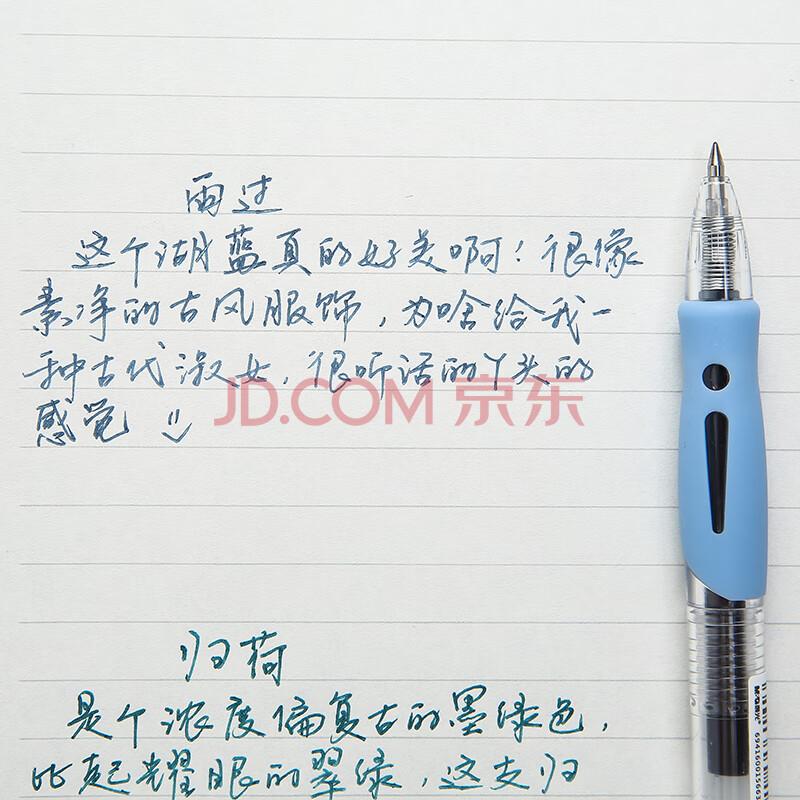 雨过
这个湖蓝真的好美啊！很像
素净的古风服饰，为啥给我一
种古代淑女，很听话的丫头的
感觉
JD.COM 京东
归荷
是个浓度偏复古的墨绿色，
比起耀眼的翠绿，这支归
M&G